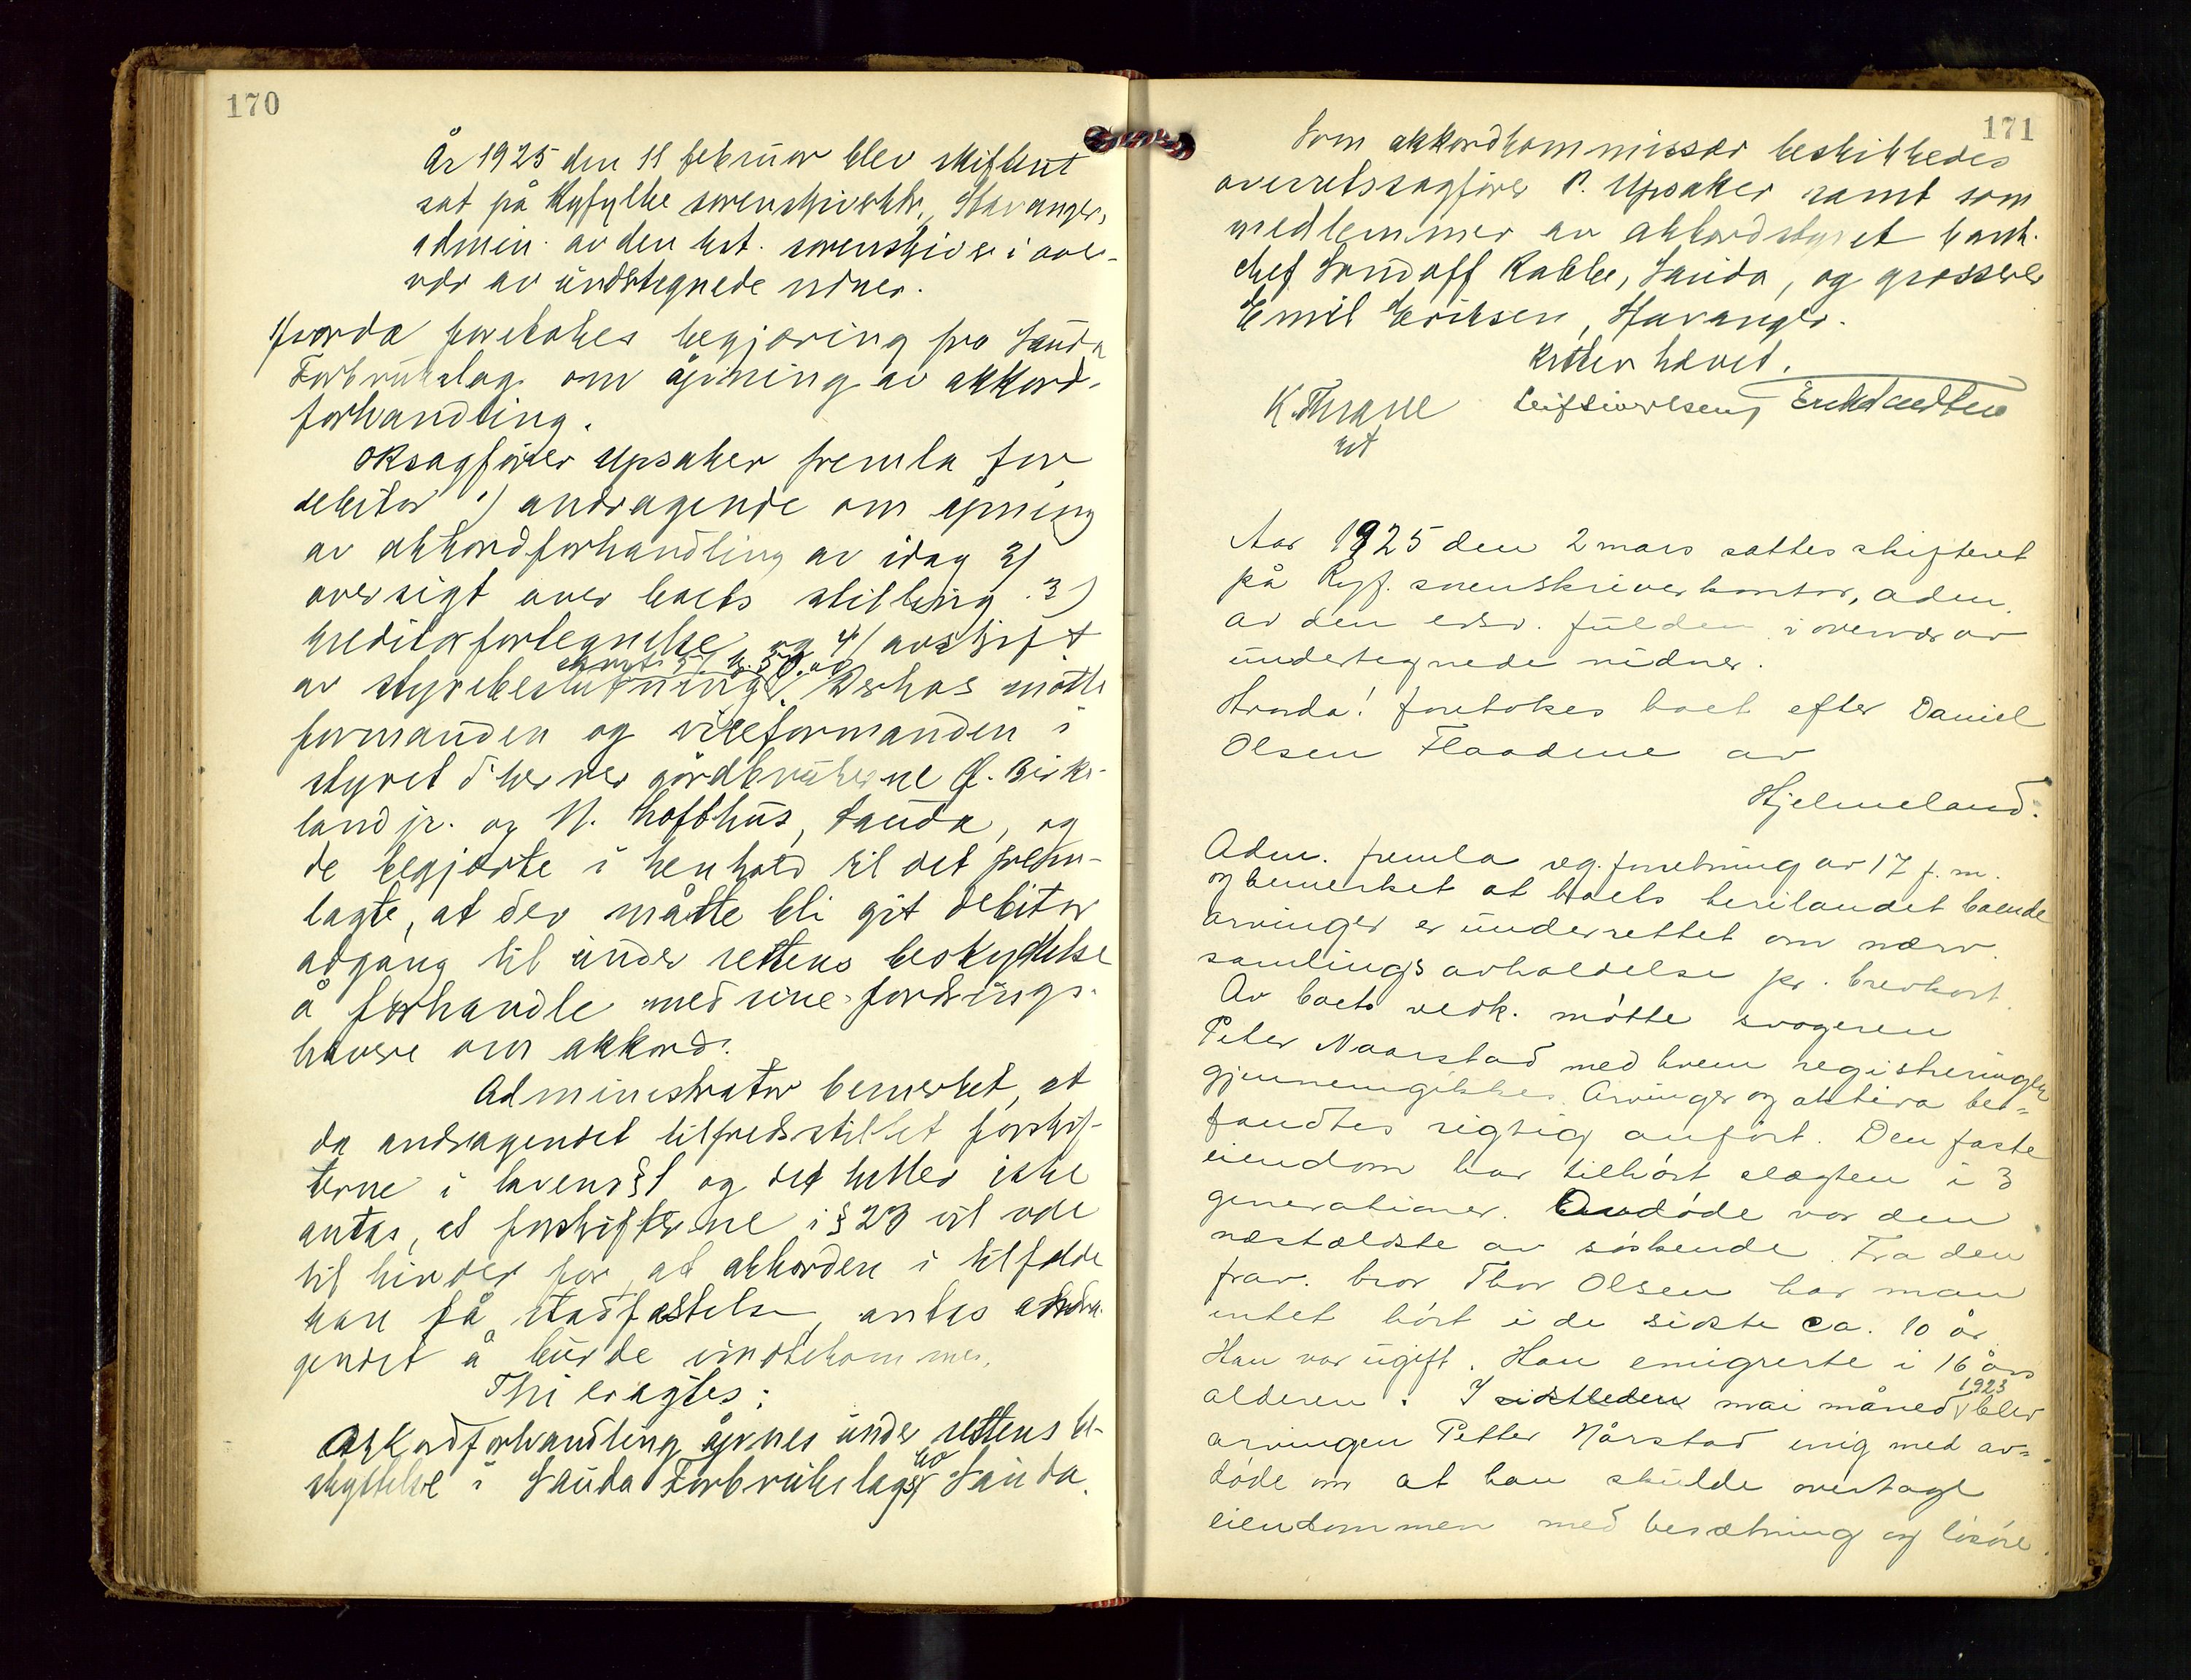 170
År 1925 den 11 februar blev skifteret
sat på Ryfylke sorenskriverktr., Stavanger,
admin. av den kst. sorenskriver i over-
vær av undertegnede vidner.
Hvorda foretokes begjæring fra Sauda
Forbrukslag om åpning av akkord-
forhandling.
Oksagfører Upsaker fremla for
debitor 1) andragende om åpning
av akkordforhandling av idag 2)
oversigt over boets stilling 3)
kreditorfortegnelse og 4) avskrift
av styrebeslutning. Derhos møtte
formanden og viceformanden i
styret d'herrer gårdbrukerne G. Birke-
land jr. og N. Lofthus, Sauda, og
de begjærte i henhold til det frem-
lagte, at der måtte bli git debitor
adgang til under rettens beskyttelse
å forhandle med sine fordrings-
havere om akkord.
Administrator bemerket, at
da andragendet tilfredsstillet forskrif-
terne i lovens § 1 og det heller ikke
antas, at forskrifterne i § 23 vil være
til hinder for, at akkorden i tilfælde
kan få stadfæstelse, antas andra-
gendet å burde imøtekommes.
Thi eragtes:
Akkordforhandling åpnes under rettens be-
skyttelse i Sauda Forbrukslags bo Sauda.
171
Som akkordkommissær beskikkedes
overretssagfører P. Upsaker samt som
medlemmer av akkordstyret bank-
chef Gundolf Rabbe, Sauda, og grosserer
Emil Eriksen, Stavanger.
Retten hævet.
K. Thrane Leif Sivertsen
kst
Aar 1925 den 2 mars sattes skifteret
på Ryf. sorenskriverkontor, adm.
av den edsv. fuldm. i overvær av
undertegnede vidner.
Hvorda! foretokes boet efter Daniel
Olsen Flaadene av
Hjelmeland.
Adm. fremla reg.forretning av 17 f.m.
og bemerket at boets herilandet boende
arvinger er underrettet om nærv.
samlings avholdelse pr. brevkort.
Av boets vedk. møtte svogeren
Peter Naarstad med hvem registreringen
gjennemgikkes. Arvinger og aktiva be-
fandtes rigtig anført. Den faste
eiendom har tilhørt slægten i 3
generationer. Avdøde var den
næstældste av søskende. Fra den
frav. bror Thor Olsen har man
intet hørt i de sidste ca. 10 år.
Han var ugift. Han emigrerte i 16 års
alderen. I sidstleden mai måned 1923 blev
arvingen Petter Nårstad enig med av-
døde om at han skulde overtage
eiendommen med besætning og løsøre.